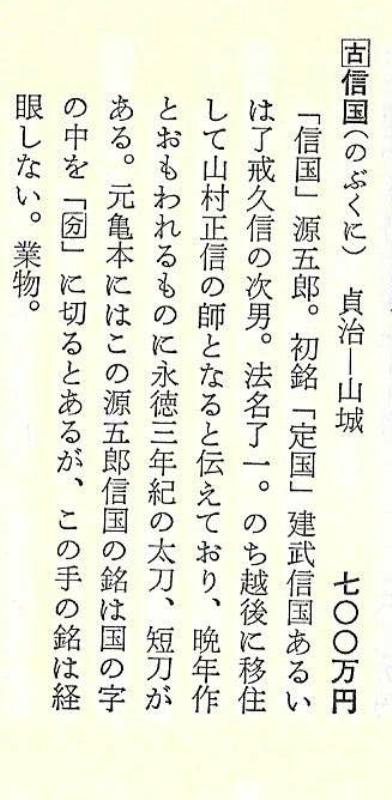 古信国(のぶくに) 貞治—山城 七〇〇万円
「信国」源五郎。初銘「定国」建武信国あるい
は了戒久信の次男。法名了一。のち越後に移住
して山村正信の師となると伝えており、晩年作
とおもわれるものに永徳三年紀の太刀、短刀が
ある。元亀本にはこの源五郎信国の銘は国の字
の中を「囦」に切るとあるが、この手の銘は経
眼しない。業物。